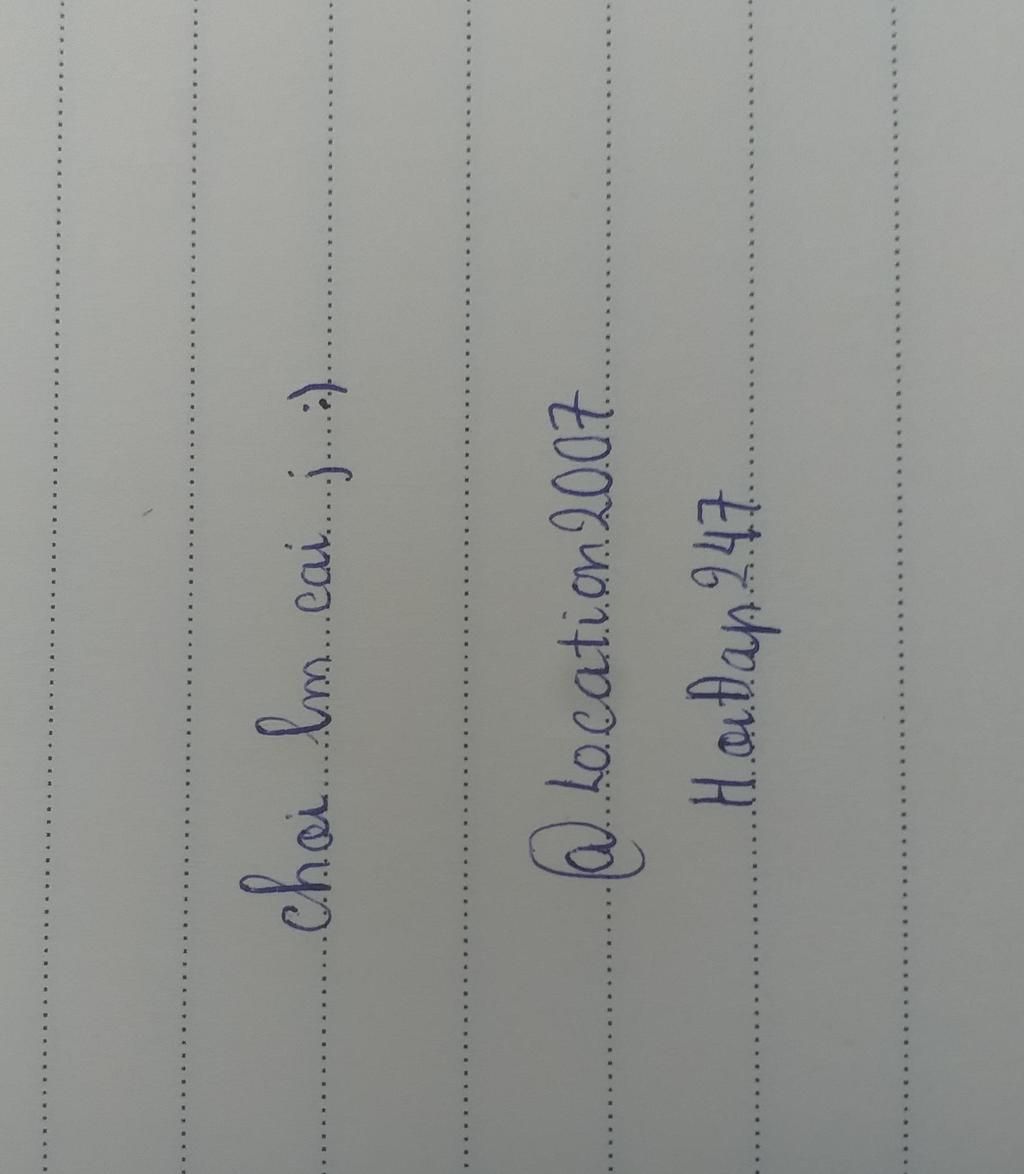 Chơi lm cai j :)
@Location2007
HoiĐap247